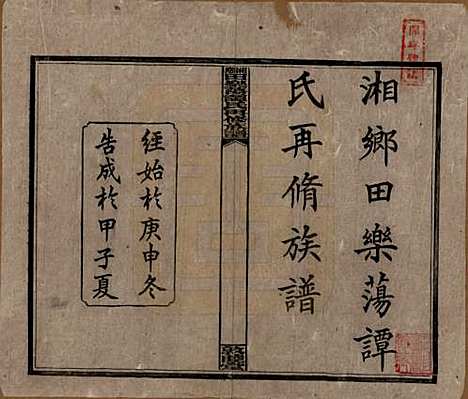 湘鄉田樂蕩譚
氏再脩族譜
經始於庚申冬
告成於甲子夏